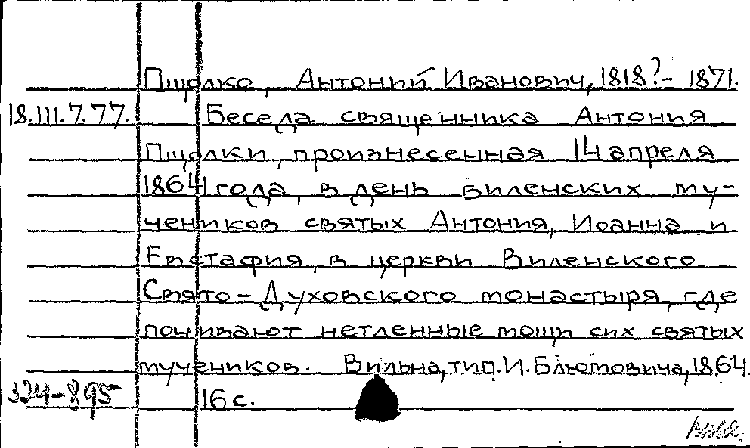 Пщолко, Антоний Иванович, 1818?- 1871.
18.III.7.77. Беседа священника Антония
Пщолки, произнесенная 14 апреля
1864 года, в день виленских му-
чеников святых Антония, Иоанна и
Евстафия, в церкви Виленского
Свято-Духовского монастыря, где
почивают нетленные мощи сих святых
мучеников. Вильна, тип. И. Блюмовича, 1864.
324-895 16 с.